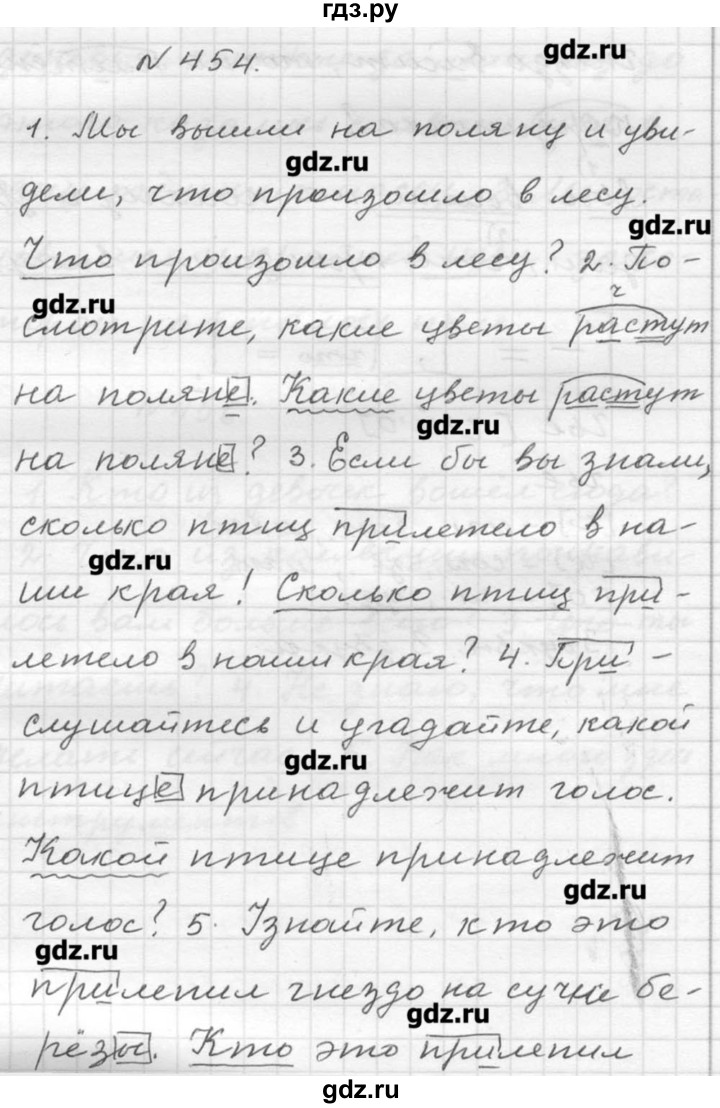 гдз.ру
№ 454.
gdz.ru
1. Мы вышли на поляну и уви-
gdz.ru
дели, что произошло в лесу.
gdz.ru
Что произошло в лесу? 2. По-
gdz.ru
ч
смотрите, какие цветы растут
на поляне. Какие цветы растут
gdz.ru
на поляне? 3. Если бы вы знали,
сколько птиц прилетело в на-
gdz.ru
ши края! Сколько птиц при-
летело в наши края? 4. При-
слушайтесь и угадайте, какой
gdz.ru
птице принадлежит голос.
Какой птице принадлежит
gdz.ru
голос? 5. Узнайте, кто это
gdz.ru
прилепил гнездо на сучке бе-
gdz.ru
рёзы. Кто это прилепил
gdz.ru